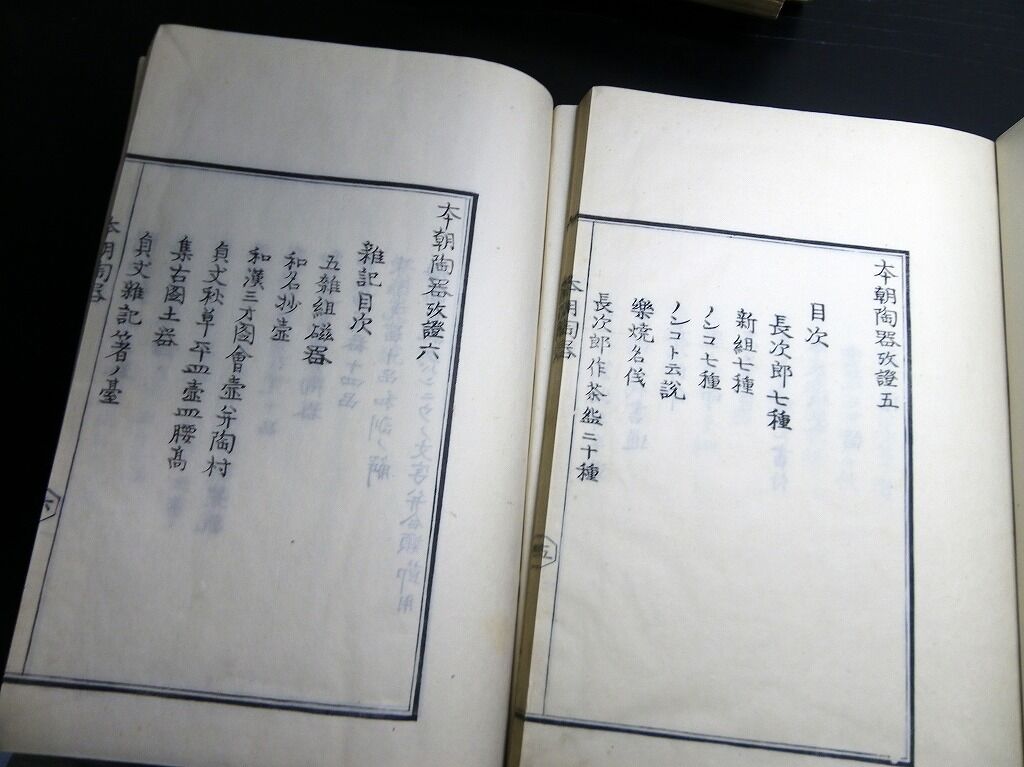 本朝陶器攷證五
目次
長次郎七種
新組七種
ノンコ七種
ノンコト云説
樂焼名伐
長次郎作茶盌二十種
本朝陶器
五
本朝陶器攷證六
雜記目次
五雜組磁器
和名抄壷
和漢三才圖會壷并陶村
貞丈秋草平皿壷皿腰高
集古圖土器
貞丈雜記箸ノ臺
本朝陶器
六